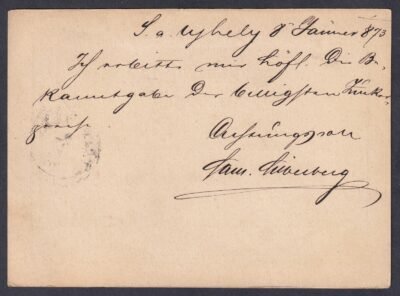 S. a. Ujhely 8 Jänner 873
Ich erbitte mir höfl. Die Be-
kanntgabe Der billigsten Zucker
preise
Achtungsvoll
Sam. Silberberg